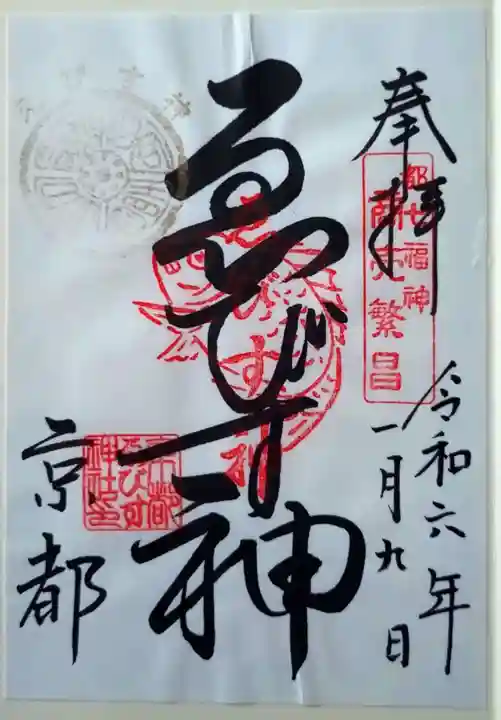 奉拝
都七福神
商売繁昌
令和六年
一月九日
ゑびす神
ゑびす神
京都
京都
ゑびす
神社之印